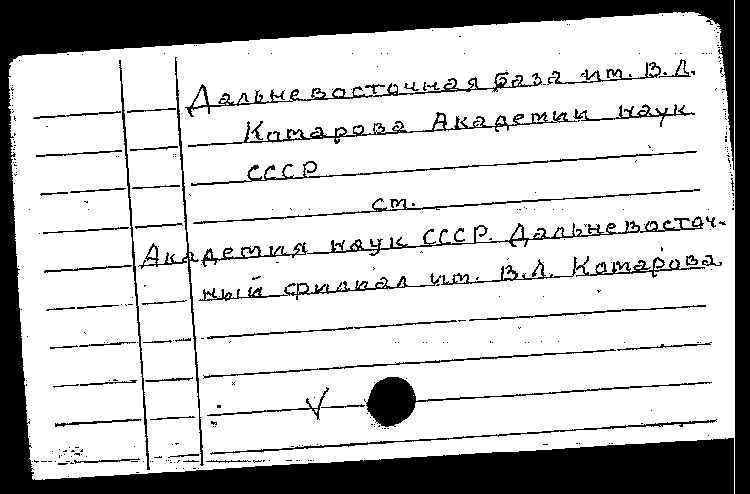 Дальневосточная база им. В.Л.
Комарова Академии наук
СССР
см.
Академия наук СССР. Дальневосточ-
ный филиал им. В.Л. Комарова